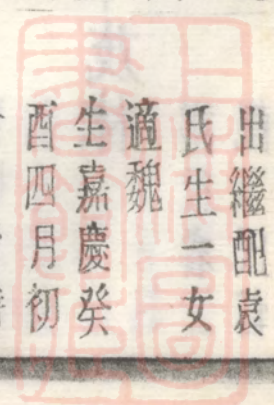 出繼配袁
氏生一女
適魏
生嘉慶癸
酉四月初